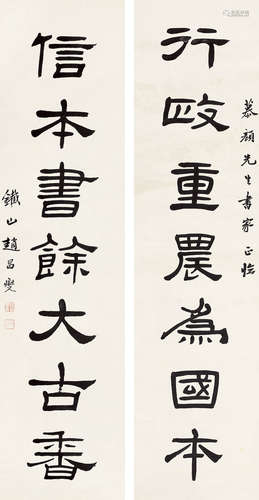 慕顏先生書家正临
行政重農為國本
信本書餘大古香
鐵山趙昌燮